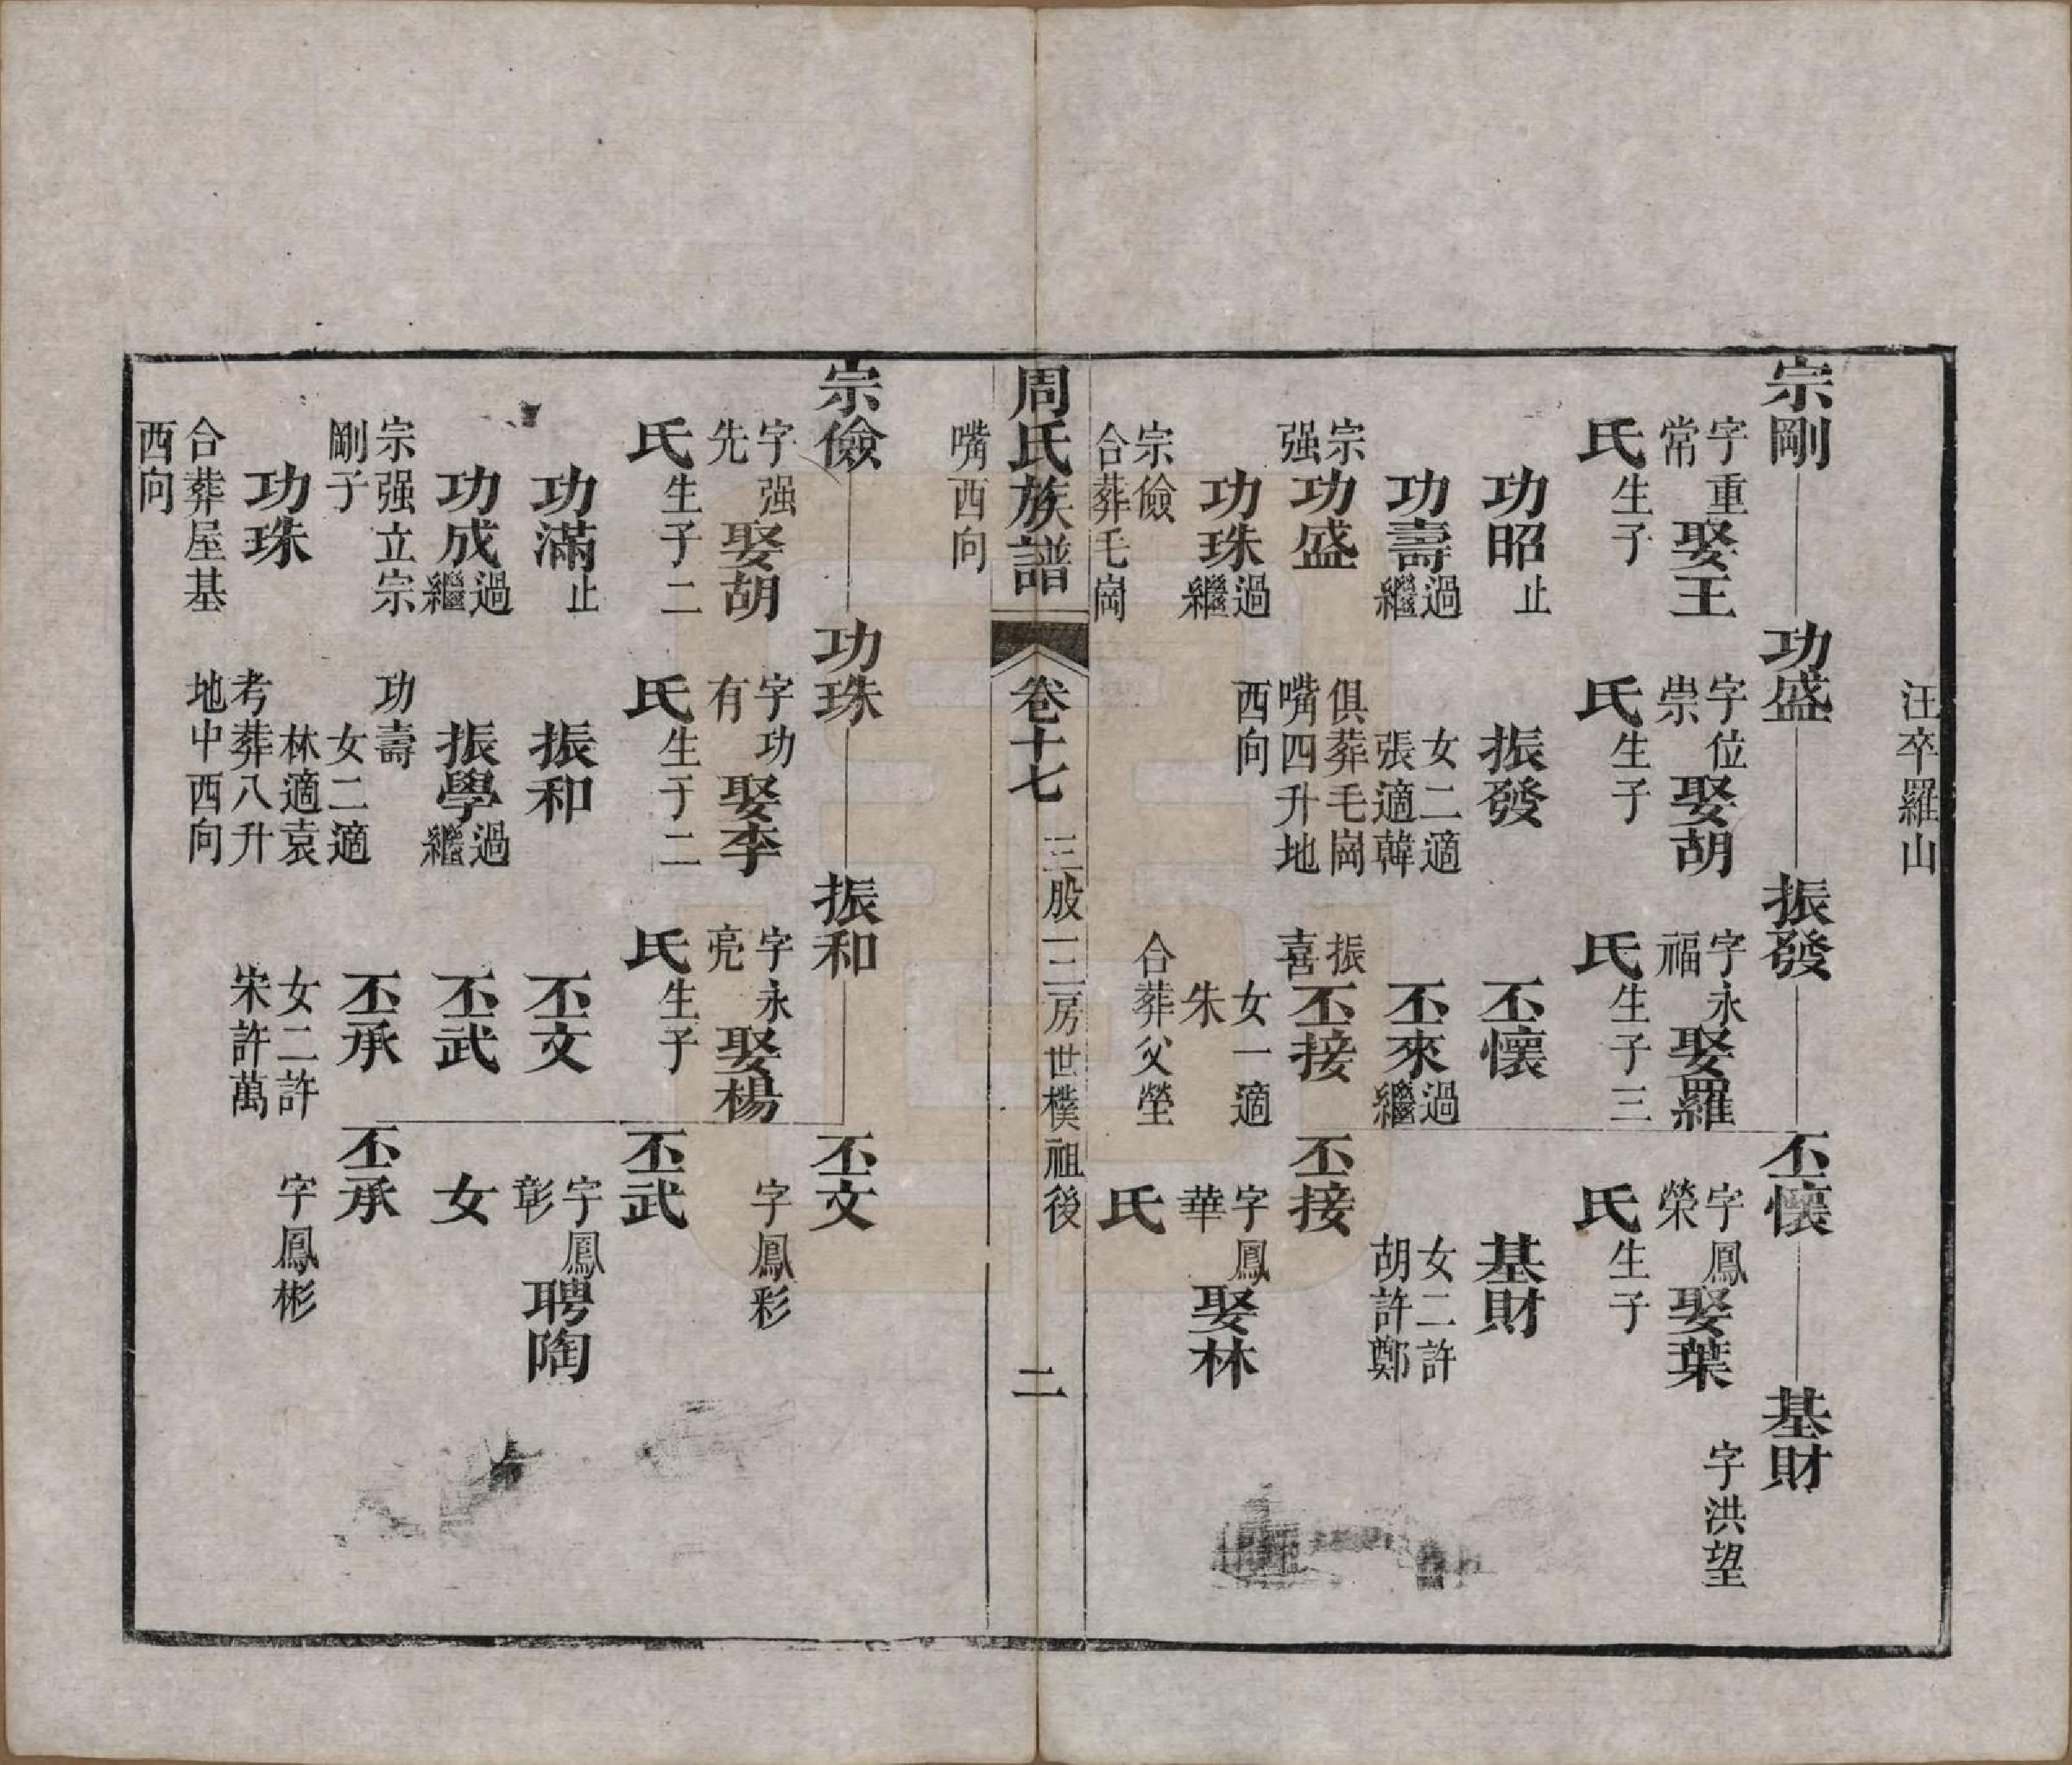 汪卒羅山
宗剛 功盛 振發 丕懷 基財
字重常娶王氏生子
功昭止
功壽過繼
宗强功盛
功珠過繼
宗儉
合葬毛崗
嘴西向
字位崇娶胡氏生子
振發
女二適張適韓
俱葬毛崗嘴四升地西向
字永福娶羅氏生子三
丕懷
丕來過繼
振喜丕接
女一適朱
合葬父塋
字鳳榮娶葉氏生子
基財
女二許胡許鄭
丕接
字鳳華娶林氏
字洪望
周氏族譜 卷十七 三股一三房世樸祖後 二
宗儉 功珠 振和 丕文
字强先娶胡氏生子二
功滿止
功成過繼
宗强立宗剛子
功珠
合葬屋基西向
字功有娶李氏生子二
振和
振學過繼
功壽
女二適林適袁
考葬八升地中西向
字永亮娶楊氏生子
丕文
丕武
丕承
女二許宋許萬
字鳳彩
丕武
字鳳彰聘陶女
丕承
字鳳彬